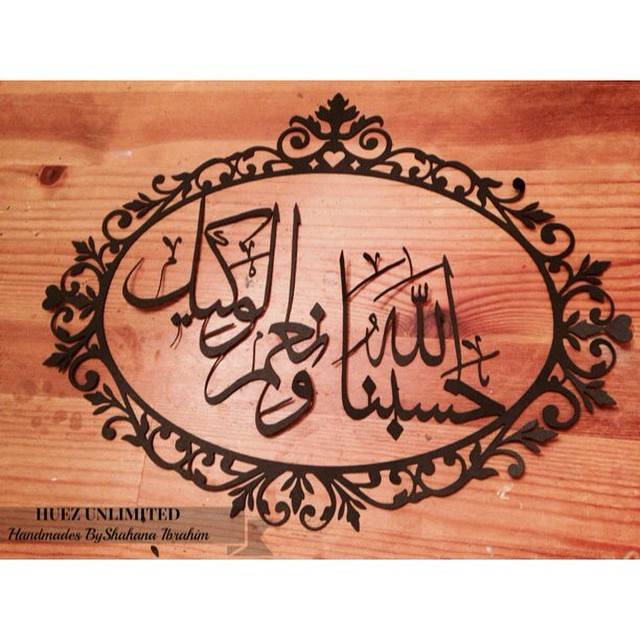 حسبنا الله
ونعم الوكيل
HUEZ UNLIMITED
Handmades By Shahana Ibrahim